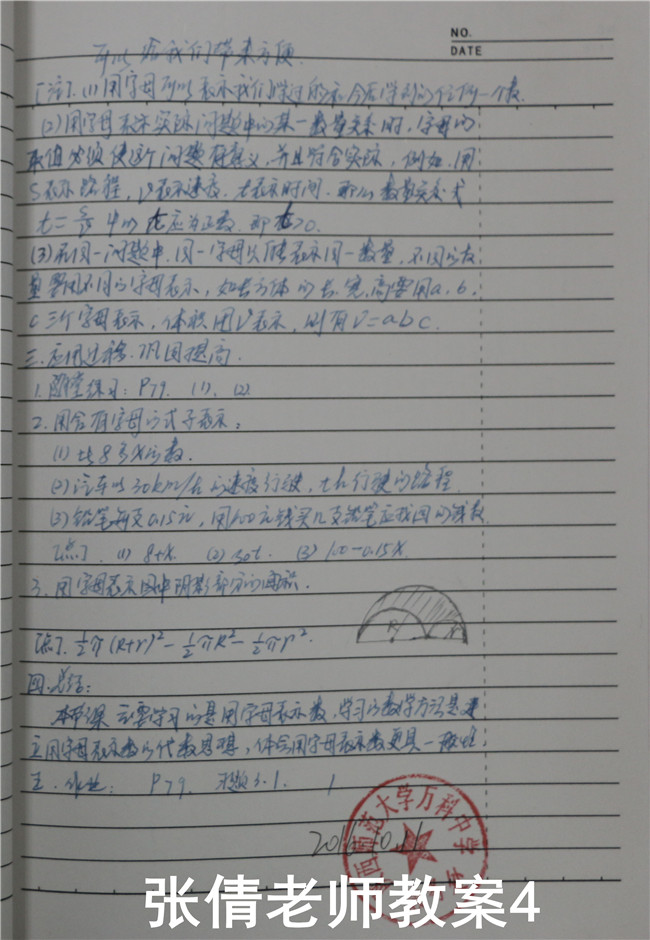 NO.
DATE
可以给我们带来方便.
[注].(1)用字母可以表示我们学过的和今后学到的任何一个数.
(2)用字母表示实际问题中的某一数量关系时,字母的
取值必须使这个问题有意义,并且符合实际,例如.用
S表示路程,v表示速度.t表示时间.那么数量关系式
t=s/v中的t应为正数.即t>0.
(3)在同一问题中.同一字母只能表示同一数量,不同的数
量要用不同的字母表示,如长方体的长.宽.高要用a.b.
c三个字母表示,体积用V表示,则有V=abc.
三.应用迁移.巩固提高.
1.随堂练习:P79.(1).(2).
2.用含有字母的式子表示:
(1)比8多x的数.
(2)汽车以30km/h的速度行驶,th行驶的路程.
(3)铅笔每支0.15元,用100元钱买x支铅笔应找回的钱数
(1) 8+x. (2) 30t. (3) 100-0.15x.
3.用字母表示图中阴影部分的面积.
R r
½π(R+r)²-½πR²-½πr².
四.总结:
本节课主要学习的是用字母表示数,学习的数学方法是建
立用字母表示数的代数思想,体会用字母表示数更具一般性.
五.作业: P79. 习题3.1. 1
师范大学万科中学
张倩老师教案4